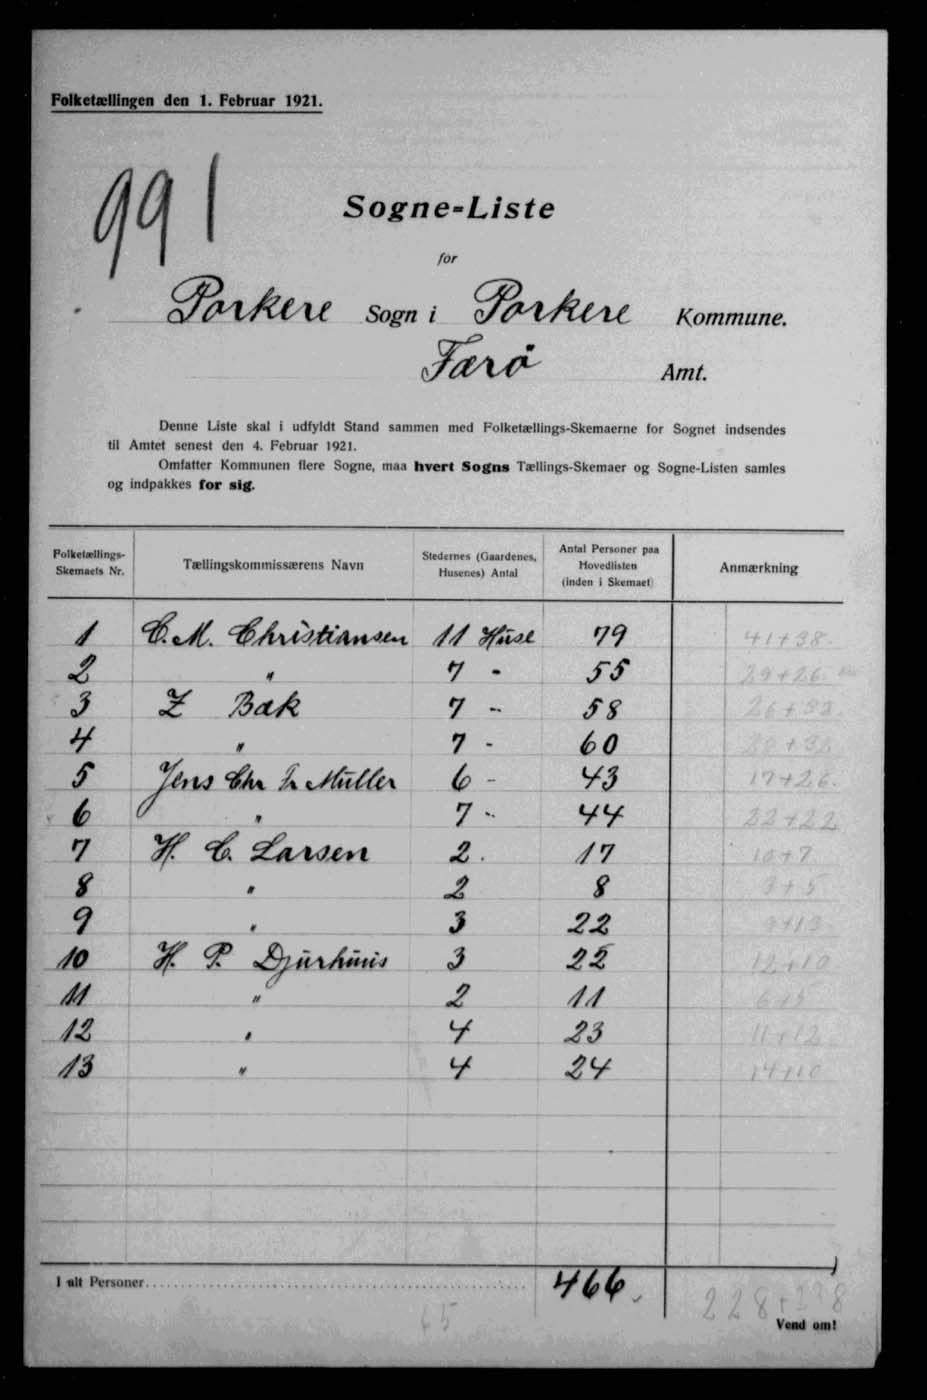 Folketællingen den 1. Februar 1921.
991
Sogne-Liste
for
Porkere Sogn i Porkere Kommune.
Færö Amt.
Denne Liste skal i udfyldt Stand sammen med Folketællings-Skemaerne for Sognet indsendes
til Amtet senest den 4. Februar 1921.
Omfatter Kommunen flere Sogne, maa hvert Sogns Tællings-Skemaer og Sogne-Listen samles
og indpakkes for sig.
Folketællings-Skemaets Nr. Tællingskommissærens Navn Stedernes (Gaardenes, Husenes) Antal Antal Personer paa Hovedlisten (inden i Skemaet) Anmærkning
1 C. M. Christiansen 11 Huse 79 41+38
2 " 7 - 55 29+26
3 Z Bæk 7 - 58 26+32
4 " 7 - 60 28+32
5 Jens Chr Müller 6 - 43 17+26
6 " 7 - 44 22+22
7 H. C. Larsen 2. 17 10+7
8 " 2 8 3+5
9 " 3 22 9+13
10 H. P. Djurhuus 3 22 12+10
11 " 2 11 6+5
12 " 4 23 11+12
13 " 4 24 14+10
I alt Personer 466.
65 228+238
Vend om!